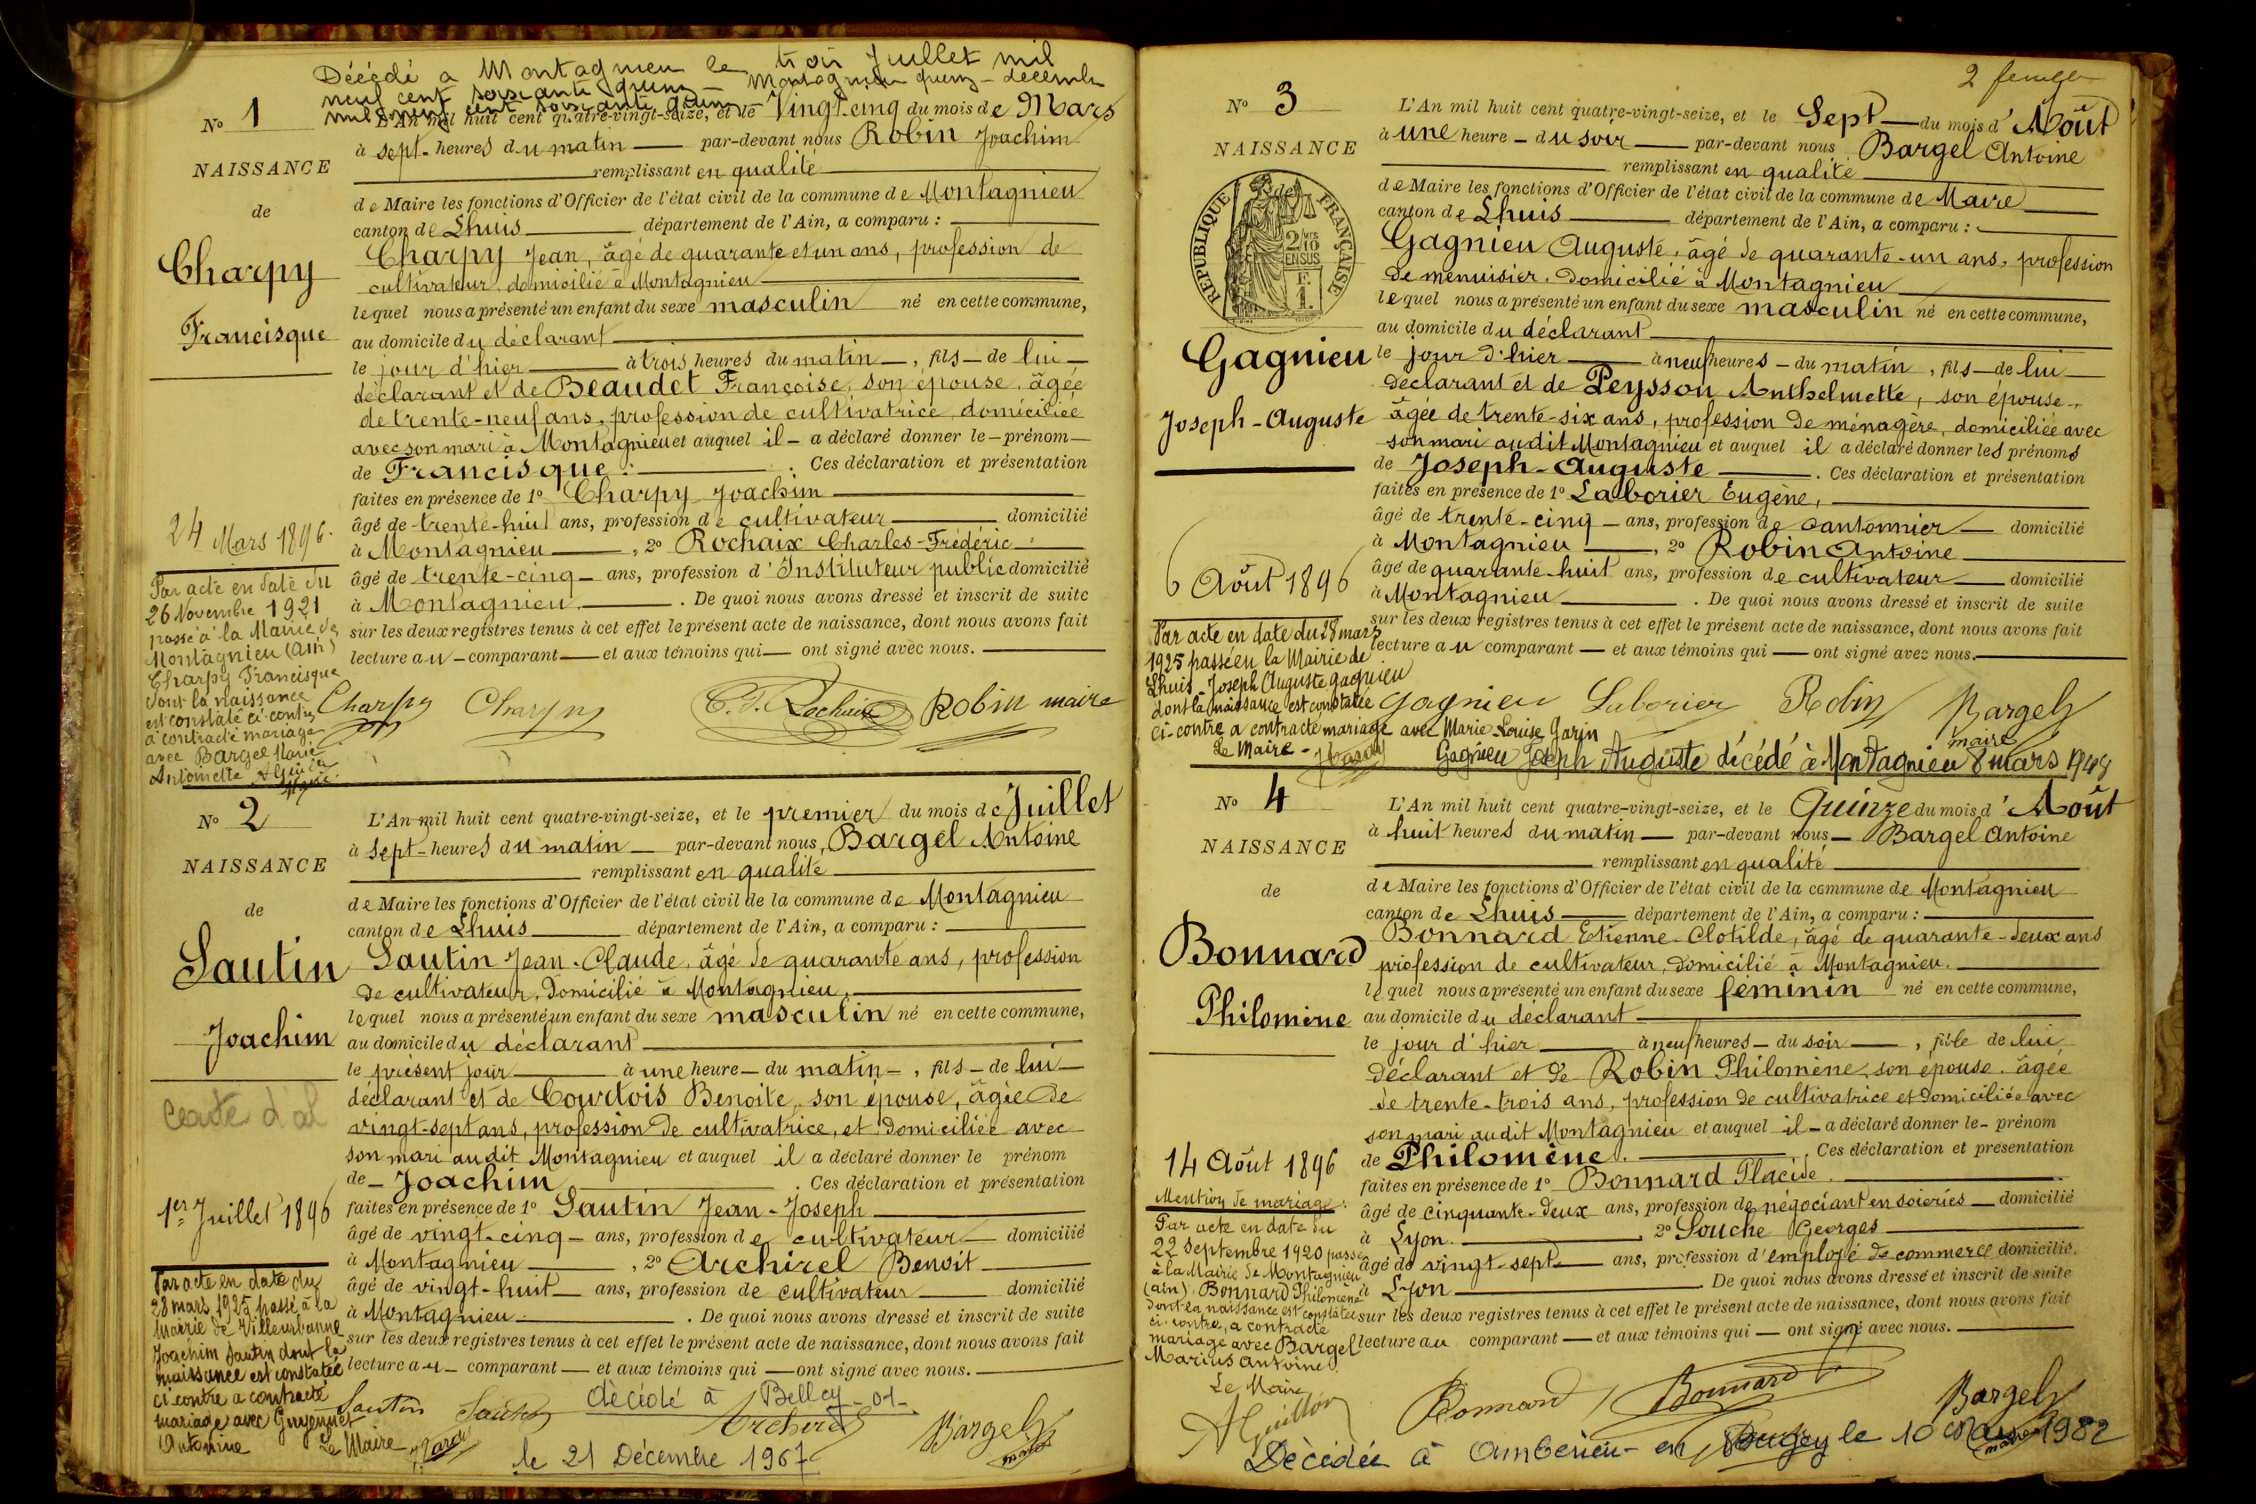 Décédé à Montagnieu le trois Juillet mil
neuf cent soixante quinze
Montagnieu quinze decembre
mil neuf cent soixante quinze
N° 1
NAISSANCE
de
Charpy
Francisque
L'An mil huit cent quatre-vingt-seize, et le Vingt-cinq du mois de Mars
à sept heures du matin par-devant nous Robin Joachim
remplissant en qualité
de Maire les fonctions d'Officier de l'état civil de la commune de Montagnieu
canton de Lhuis département de l'Ain, a comparu :
Charpy Jean, âgé de quarante et un ans, profession de
cultivateur, domicilié à Montagnieu
lequel nous a présenté un enfant du sexe masculin né en cette commune,
au domicile du déclarant
le jour d'hier à trois heures du matin, fils de lui
déclarant et de Beaudet Françoise, son épouse, âgée
de trente-neuf ans, profession de cultivatrice, domiciliée
avec son mari à Montagnieu et auquel il a déclaré donner le prénom
de Francisque. Ces déclaration et présentation
faites en présence de 1° Charpy Joachim
âgé de trente-huit ans, profession de cultivateur domicilié
à Montagnieu, 2° Rochaix Charles-Frédéric
âgé de trente-cinq ans, profession d'Instituteur public domicilié
à Montagnieu. De quoi nous avons dressé et inscrit de suite
sur les deux registres tenus à cet effet le présent acte de naissance, dont nous avons fait
lecture au comparant et aux témoins qui ont signé avec nous.
24 Mars 1896.
Par acte en date du
26 Novembre 1921
passé à la Mairie de
Montagnieu (Ain)
Charpy Francisque
dont la naissance
est constaté ci-contre
a contracté mariage
avec Bargel Marie
Antoinette
Charpy Charpy C. F. Rochaix Robin maire
N° 2
NAISSANCE
de
Sautin
Joachim
L'An mil huit cent quatre-vingt-seize, et le premier du mois de Juillet
à sept heures du matin par-devant nous, Bargel Antoine
remplissant en qualité
de Maire les fonctions d'Officier de l'état civil de la commune de Montagnieu
canton de Lhuis département de l'Ain, a comparu :
Sautin Jean-Claude, âgé de quarante ans, profession
de cultivateur, domicilié à Montagnieu,
lequel nous a présenté un enfant du sexe masculin né en cette commune,
au domicile du déclarant
le présent jour à une heure du matin, fils de lui
déclarant et de Courtois Benoite, son épouse, âgée de
vingt-sept ans, profession de cultivatrice, et domiciliée avec
son mari audit Montagnieu et auquel il a déclaré donner le prénom
de Joachim. Ces déclaration et présentation
faites en présence de 1° Sautin Jean-Joseph
âgé de vingt-cinq ans, profession de cultivateur domicilié
à Montagnieu, 2° Archirel Benoit
âgé de vingt-huit ans, profession de cultivateur domicilié
à Montagnieu. De quoi nous avons dressé et inscrit de suite
sur les deux registres tenus à cet effet le présent acte de naissance, dont nous avons fait
lecture au comparant et aux témoins qui ont signé avec nous.
1er Juillet 1896
Par acte en date du
28 mars 1925 passé à la
Mairie de Villeurbanne
Joachim Sautin dont la
naissance est constatée
ci contre a contracté
mariage avec Guyennet
Antonine
Le Maire
Sautin Sautin Archirel Bargel maire
décédé à Belley - 01-
le 21 Décembre 1967
2 feuillet
N° 3
NAISSANCE
de
RÉPUBLIQUE FRANÇAISE
2/10 EN SUS
F. 1.
Gagnieu
Joseph-Auguste
L'An mil huit cent quatre-vingt-seize, et le Sept du mois d'Août
à une heure du soir par-devant nous Bargel Antoine
remplissant en qualité
de Maire les fonctions d'Officier de l'état civil de la commune de Maire
canton de Lhuis département de l'Ain, a comparu :
Gagnieu Auguste, âgé de quarante-un ans, profession
de menuisier, domicilié à Montagnieu
lequel nous a présenté un enfant du sexe masculin né en cette commune,
au domicile du déclarant
le jour d'hier à neuf heures du matin, fils de lui
déclarant et de Peysson Anthelmette, son épouse,
âgée de trente-six ans, profession de ménagère, domiciliée avec
son mari audit Montagnieu et auquel il a déclaré donner les prénoms
de Joseph-Auguste. Ces déclaration et présentation
faites en présence de 1° Laborier Eugène,
âgé de trente-cinq ans, profession de cantonnier domicilié
à Montagnieu, 2° Robin Antoine
âgé de quarante-huit ans, profession de cultivateur domicilié
à Montagnieu. De quoi nous avons dressé et inscrit de suite
sur les deux registres tenus à cet effet le présent acte de naissance, dont nous avons fait
lecture au comparant et aux témoins qui ont signé avec nous.
6 Août 1896
Par acte en date du 28 mars
1925 passé en la Mairie de
Lhuis - Joseph Auguste Gagnieu
dont la naissance est constatée
ci-contre a contracté mariage avec Marie Louise Jarin
Le Maire
Gagnieu Laborier Robin Bargel
maire
Gagnieu Joseph Auguste décédé à Montagnieu 8 mars 1948
N° 4
NAISSANCE
de
Bonnard
Philomène
L'An mil huit cent quatre-vingt-seize, et le Quinze du mois d'Août
à huit heures du matin par-devant nous Bargel Antoine
remplissant en qualité
de Maire les fonctions d'Officier de l'état civil de la commune de Montagnieu
canton de Lhuis département de l'Ain, a comparu :
Bonnard Etienne-Clotilde, âgé de quarante-deux ans
profession de cultivateur, domicilié à Montagnieu.
lequel nous a présenté un enfant du sexe féminin né en cette commune,
au domicile du déclarant
le jour d'hier à neuf heures du soir, fille de lui
déclarant et de Robin Philomène, son épouse, âgée
de trente-trois ans, profession de cultivatrice et domiciliée avec
son mari audit Montagnieu et auquel il a déclaré donner le prénom
de Philomène. Ces déclaration et présentation
faites en présence de 1° Bonnard Placide
âgé de cinquante-deux ans, profession de négociant en soieries domicilié
à Lyon. 2° Souche Georges
âgé de vingt-sept ans, profession d'employé de commerce domicilié
à Lyon. De quoi nous avons dressé et inscrit de suite
sur les deux registres tenus à cet effet le présent acte de naissance, dont nous avons fait
lecture au comparant et aux témoins qui ont signé avec nous.
14 Août 1896
Mention de mariage :
Par acte en date du
22 Septembre 1920 passé
à la Mairie de Montagnieu
(Ain). Bonnard Philomène
dont la naissance est constatée
ci-contre, a contracté
mariage avec Bargel
Marius Antoine
Le Maire
A Guillon
Bonnard Bonnard Bargel
maire
Décédée à Ambérieu-en Bugey le 10 Mars 1982